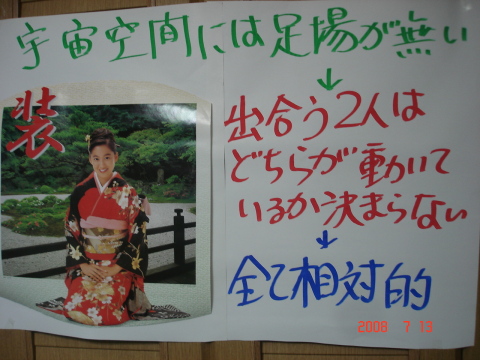 宇宙空間には足場が無い
↓
装
出合う2人は
どちらが動いて
いるか決まらない
↓
全て相対的
2008 7 13